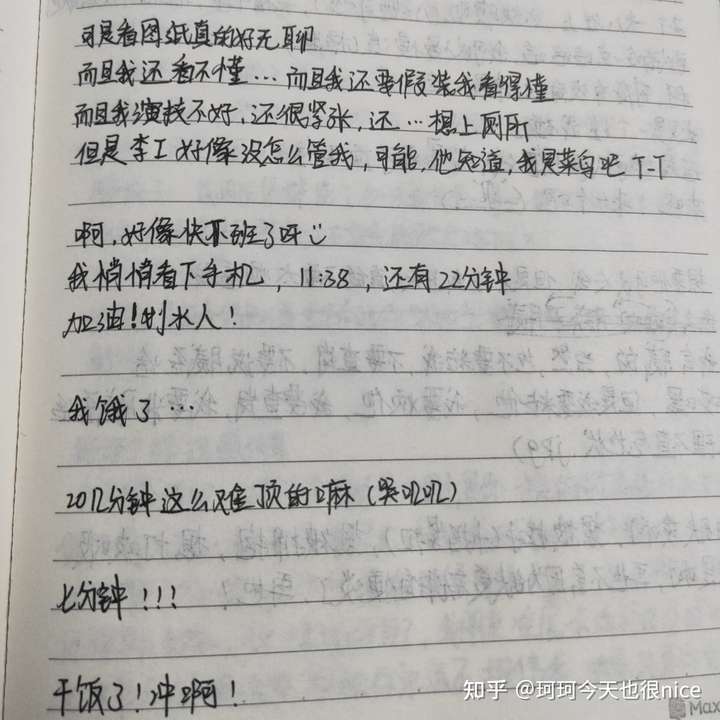 可是看图纸真的好无聊
而且我还看不懂…而且我还要假装我看得懂
而且我演技不好，还很紧张，还…想上厕所
但是李工好像没怎么管我，可能，他知道，我是菜鸟吧 T-T
啊，好像快下班了呀
我悄悄看下手机，11:38，还有22分钟
加油！划水人！
我饿了…
20几分钟这么难顶的嘛（哭叽叽）
七分钟！！！
干饭了！冲啊！
知乎 @珂珂今天也很nice
Max